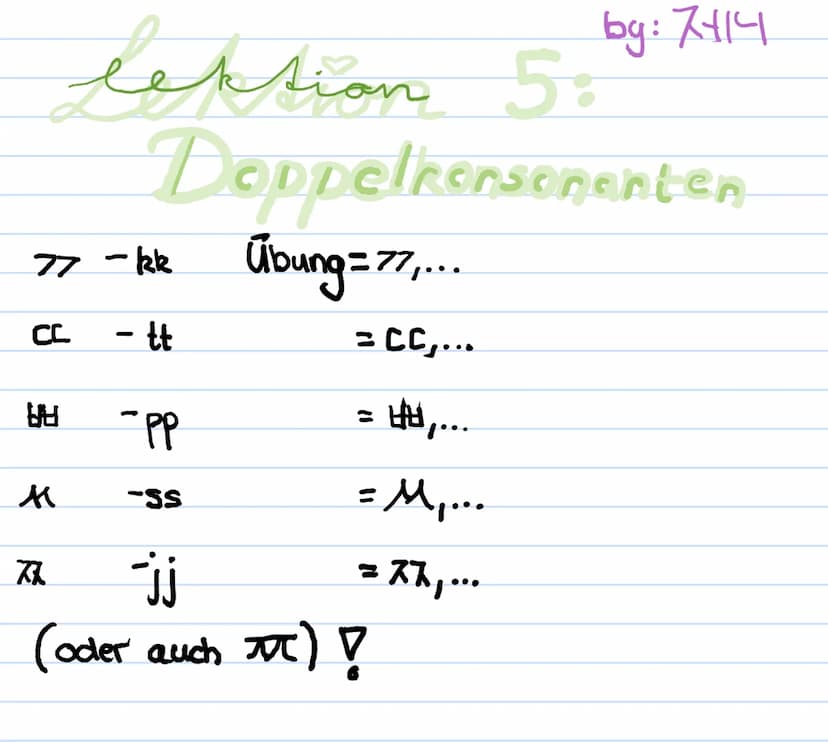 by: 저니
Lektion 5:
Doppelkonsonanten
ㄲ - kk Übung = ㄲ,...
ㄸ - tt = ㄸ,...
ㅃ - pp = ㅃ,...
ㅆ - ss = ㅆ,...
ㅉ - jj = ㅉ,...
(oder auch ㅉ) !